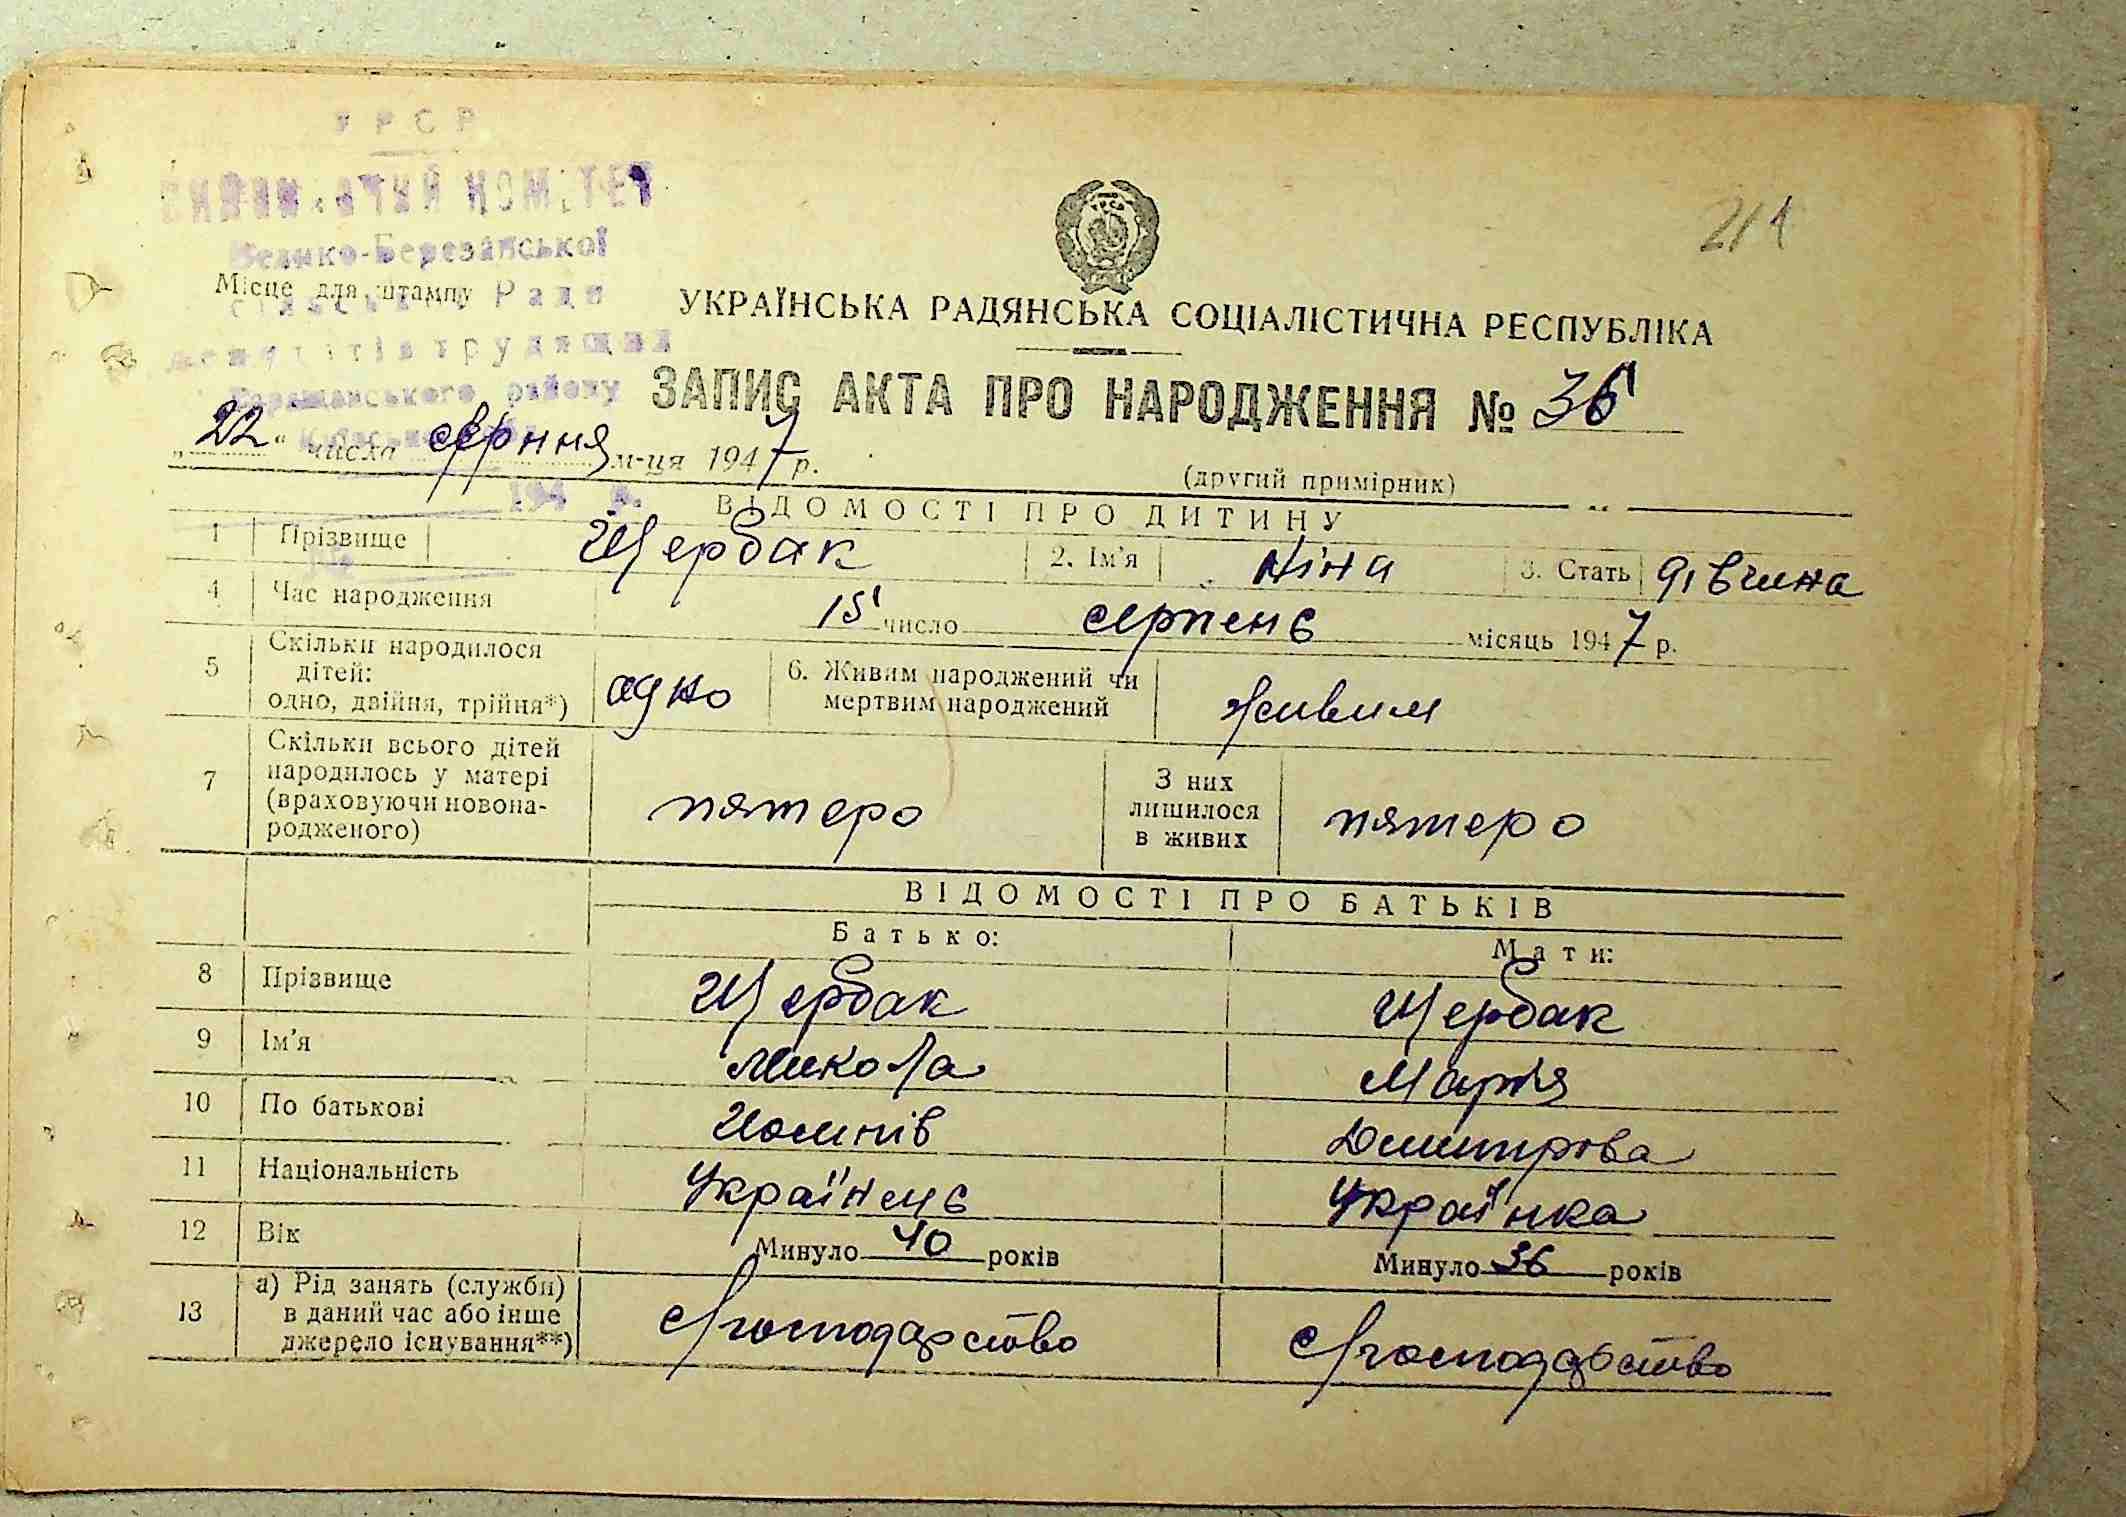 УРСР
Велико-Березанської
Місце для штампу
Ради
трудящих
району
214
УРСР
УКРАЇНСЬКА РАДЯНСЬКА СОЦІАЛІСТИЧНА РЕСПУБЛІКА
ЗАПИС АКТА ПРО НАРОДЖЕННЯ № 36
„22“ числа серпня м-ця 1947 р.
(другий примірник)
194 р.
ВІДОМОСТІ ПРО ДИТИНУ
1 Прізвище Щербак 2. Ім'я Ніна 3. Стать дівчина
4 Час народження 15 число серпень місяць 1947 р.
5 Скільки народилося
дітей:
одно, двійня, трійня*) одно 6. Живим народжений чи
мертвим народжений живим
7 Скільки всього дітей
народилось у матері
(враховуючи новона-
родженого) пятеро З них
лишилося
в живих пятеро
ВІДОМОСТІ ПРО БАТЬКІВ
Батько: Мати:
8 Прізвище Щербак Щербак
9 Ім'я Микола Марія
10 По батькові Дмитрова
11 Національність Українець Українка
12 Вік Минуло 40 років Минуло 36 років
13 а) Рід занять (служби)
в даний час або інше
джерело існування**) с/господарство с/господарство